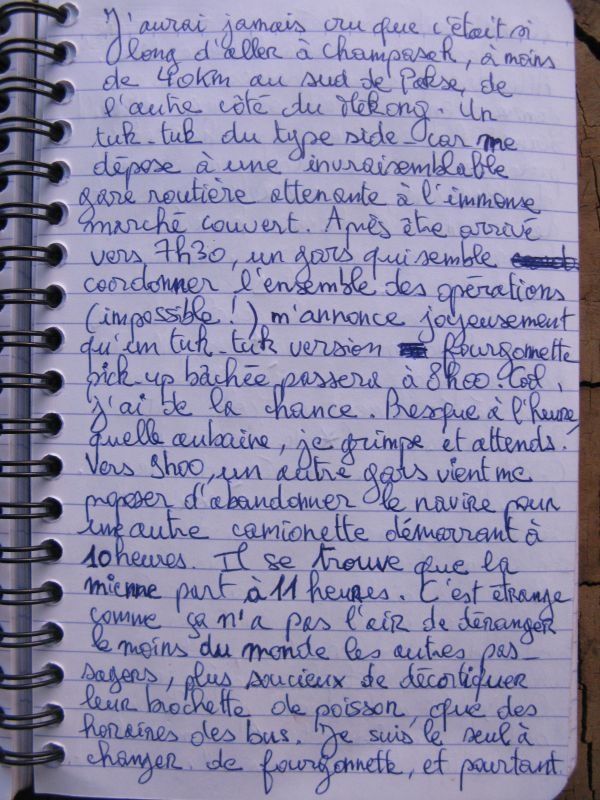 J'aurai jamais cru que c'était si
long d'aller à Champasak, à moins
de 40km au sud de Pakse, de
l'autre côté du Mékong. Un
tuk-tuk du type side-car me
dépose à une invraisemblable
gare routière attenante à l'immense
marché couvert. Après être arrivé
vers 7h30, un gars qui semble
coordonner l'ensemble des opérations
(impossible !) m'annonce joyeusement
qu'un tuk-tuk version fourgonnette
pick-up bâchée passera à 8h00. Cool,
j'ai de la chance. Presque à l'heure,
quelle aubaine, je grimpe et attends.
Vers 9h00, un autre gars vient me
proposer d'abandonner le navire pour
une autre camionette démarrant à
10 heures. Il se trouve que la
mienne part à 11 heures. C'est étrange
comme ça n'a pas l'air de déranger
le moins du monde les autres pas-
sagers, plus soucieux de décortiquer
leur brochette de poisson, que des
horaires des bus. Je suis le seul à
changer de fourgonnette, et pourtant